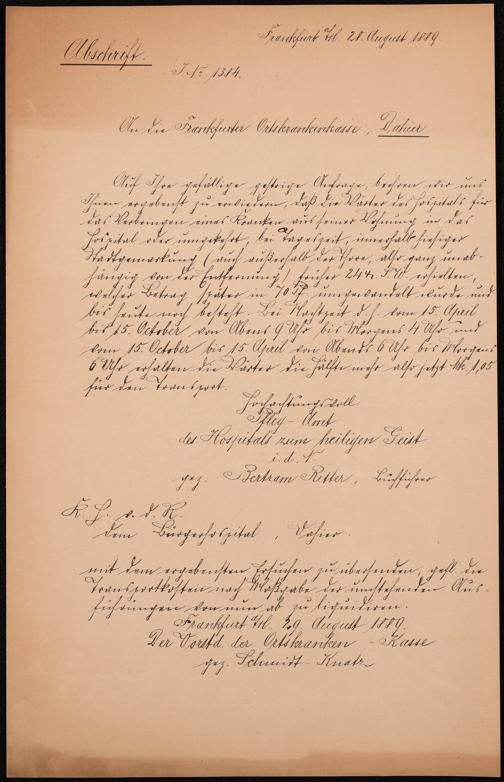 Frankfurt a/M. 28. August 1889.
Abschrift.
J. No 1384.
An die Frankfurter Ortskrankenkasse, Dahier
Auf Ihre gefällige gestrige Anfrage, beehren wir uns
Ihnen ergebenst zu erwiedern, daß die Wärter des Hospitals für
das Verbringen eines Kranken aus seiner Wohnung in das
Hospital oder umgekehrt, bei Tageszeit, innerhalb hiesiger
Stadtgemarkung (auch außerhalb der Thore, also ganz unab-
hängig von der Entfernung) früher 24 Kr. S.W. erhielten,
welcher Betrag später in 70 Pf umgewandelt wurde und
bis heute noch besteht. Bei Nachtzeit d. h. vom 15. April
bis 15. October von Abens 9 Uhr bis Morgens 4 Uhr und
vom 15. October bis 15. April von Abends 6 Uhr bis Morgens
6 Uhr erhalten die Wärter die Hälfte mehr also jetzt Mk. 1,05
für den Transport.
Hochachtungsvoll
Pfleg-Amt
des Hospitals zum heiligen Geist
i. d. N.
gez. Bertram Ritter, Buchführer
K. H. v. d. R.
dem Bürgerhospital, Dahier.
mit dem ergebensten Ersuchen zu übersenden, gefl. die
Transportkosten nach Maßgabe der umstehenden Aus-
führungen von nun ab zu liquidiren.
Frankfurt a/M. 29. August 1889.
Der Vorstd. der Ortskranken-Kasse
gez. Schmidt-Knatz